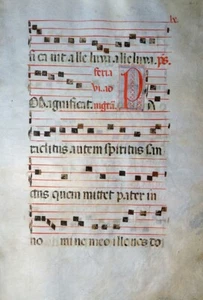 fi ca vit alle luya alle luya. ps.
feria P
vi. ad
Magnificat.
raclitus autem spiritus san
ctus quem mittet pater in
no mine meo ille vos do